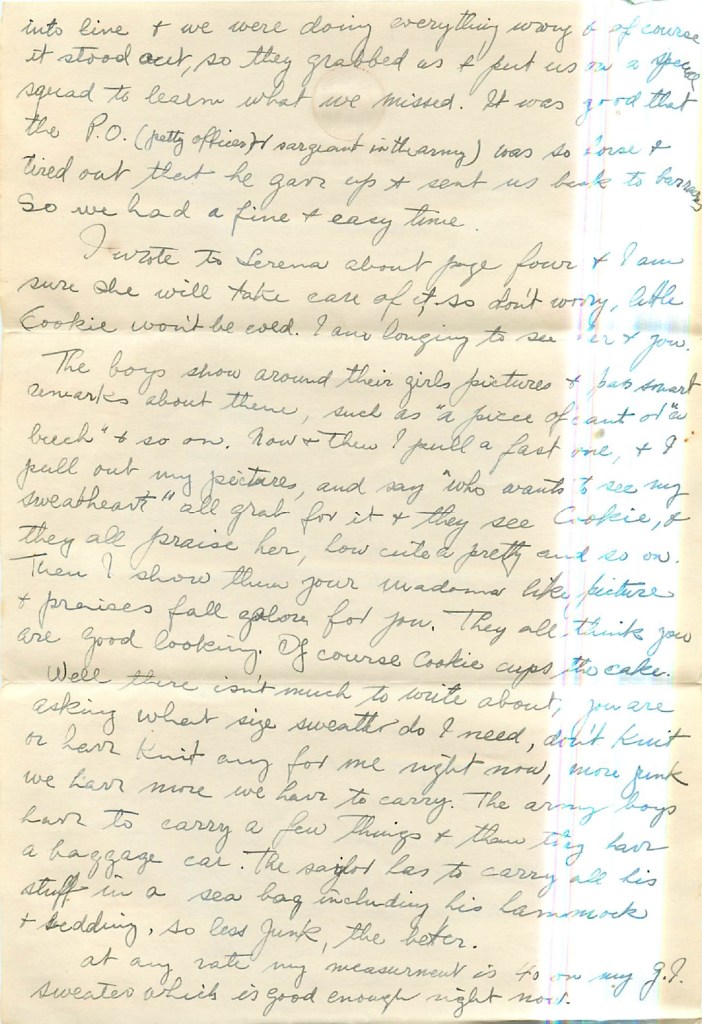 into line & we were doing everything wrong & of course
it stood out, so they grabbed us & put us on a
squad to learn what we missed. It was good that
the P.O. (petty officer or sargeant in the army) was so horse &
tired out that he gave up & sent us back to
So we had a fine & easy time.
I wrote to Serena about page four & I am
sure she will take care of it, so don't worry, little
Cookie won't be cold. I am longing to see her & you.
The boys show around their girls pictures & pass smart
remarks about them, such as "a piece of or "a
" & so on. Now & then I pull a fast one, & I
pull out my pictures, and say "who wants to see my
sweatheart" all grab for it & they see Cookie, &
they all praise her, how cute & pretty and so on.
Then I show them your madonna like picture
& praises fall galore for you. They all think you
are good looking. Of course Cookie cups the cake.
Well there isn't much to write about, you are
asking what size sweather do I need, don't Knit
or have Knit any for me right now, more junk
we have more we have to carry. The army boys
have to carry a few things & then they have
a baggage car. The sailor has to carry all his
stuff in a sea bag including his hammock
& bedding, so less junk, the beter.
at any rate my measurment is 40 on my G.I.
sweater which is good enough right now.